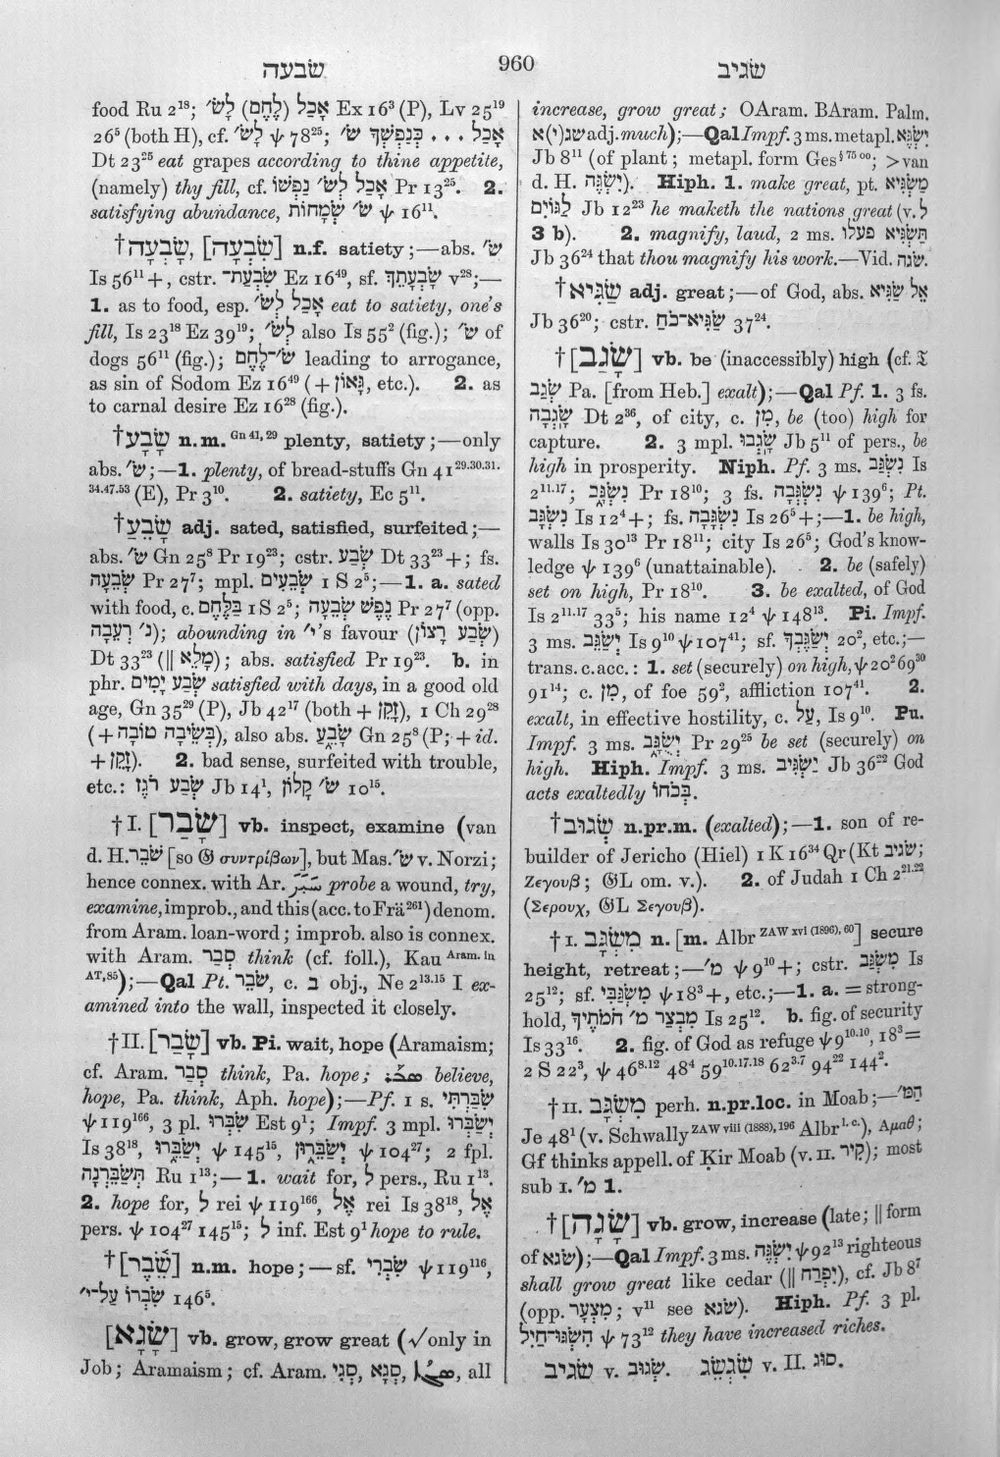 שׂבעה
960
שׂגיב
food Ru 2¹⁸; אָכַל (לֶחֶם) לָשׂ׳ Ex 16³ (P), Lv 25¹⁹
26⁵ (both H), cf. לָשׂ׳ ψ 78²⁵; אָכַל ... כְּנַפְשְׁךָ שׂ׳
Dt 23²⁵ eat grapes according to thine appetite,
(namely) thy fill, cf. אֹכֵל לְשׂ׳ נַפְשׁוֹ Pr 13²⁵. 2.
satisfying abundance, שׂ׳ שְׂמָחוֹת ψ 16¹¹.
†שָׂבְעָה, [שִׂבְעָה] n.f. satiety;—abs. שׂ׳
Is 56¹¹ +, cstr. שִׂבְעַת־ Ez 16⁴⁹, sf. שָׂבְעָתֵךְ v²⁸;—
1. as to food, esp. אָכַל לְשׂ׳ eat to satiety, one's
fill, Is 23¹⁸ Ez 39¹⁹; לְשׂ׳ also Is 55² (fig.); שׂ׳ of
dogs 56¹¹ (fig.); שׂ׳־לֶחֶם leading to arrogance,
as sin of Sodom Ez 16⁴⁹ (+ גָּאוֹן, etc.). 2. as
to carnal desire Ez 16²⁸ (fig.).
†שָׂבָע n.m. Gn 41, 29 plenty, satiety;—only
abs. שׂ׳;—1. plenty, of bread-stuffs Gn 41²⁹·³⁰·³¹·
³⁴·⁴⁷·⁵³ (E), Pr 3¹⁰. 2. satiety, Ec 5¹¹.
†שָׂבֵעַ adj. sated, satisfied, surfeited;—
abs. שׂ׳ Gn 25⁸ Pr 19²³; cstr. שְׂבַע Dt 33²³ +; fs.
שְׂבֵעָה Pr 27⁷; mpl. שְׂבֵעִים 1 S 2⁵;—1. a. sated
with food, c. בַּלֶּחֶם 1 S 2⁵; נֶפֶשׁ שְׂבֵעָה Pr 27⁷ (opp.
נ׳ רְעֵבָה); abounding in י׳'s favour (שְׂבַע רָצוֹן)
Dt 33²³ (‖ מָלֵא); abs. satisfied Pr 19²³. b. in
phr. שְׂבַע יָמִים satisfied with days, in a good old
age, Gn 35²⁹ (P), Jb 42¹⁷ (both + זָקֵן), 1 Ch 29²⁸
(+ בְּשֵׂיבָה טוֹבָה), also abs. שָׂבֵעַ Gn 25⁸ (P; + id.
+ זָקֵן). 2. bad sense, surfeited with trouble,
etc.: שְׂבַע רֹגֶז Jb 14¹, שׂ׳ קָלוֹן 10¹⁵.
†I. [שָׂבַר] vb. inspect, examine (van
d. H. שֹׁבֵר [so 𝔊 συντρίβων], but Mas. שׂ׳ v. Norzi;
hence connex. with Ar. سَبَرَ probe a wound, try,
examine, improb., and this (acc. to Frä²⁶¹) denom.
from Aram. loan-word; improb. also is connex.
with Aram. סְבַר think (cf. foll.), Kau Aram. in
AT, 85);—Qal Pt. שֹׂבֵר, c. ב obj., Ne 2¹³·¹⁵ I ex-
amined into the wall, inspected it closely.
†II. [שָׂבַר] vb. Pi. wait, hope (Aramaism;
cf. Aram. סְבַר think, Pa. hope; ܣܒܪ believe,
hope, Pa. think, Aph. hope);—Pf. 1 s. שִׂבַּרְתִּי
ψ 119¹⁶⁶, 3 pl. שִׂבְּרוּ Est 9¹; Impf. 3 mpl. יְשַׂבְּרוּ
Is 38¹⁸, יְשַׂבֵּרוּ ψ 145¹⁵, יְשַׂבֵּרוּן ψ 104²⁷; 2 fpl.
תְּשַׂבֵּרְנָה Ru 1¹³;—1. wait for, לְ pers., Ru 1¹³.
2. hope for, לְ rei ψ 119¹⁶⁶, אֶל rei Is 38¹⁸, אֶל
pers. ψ 104²⁷ 145¹⁵; לְ inf. Est 9¹ hope to rule.
†[שֵׂבֶר] n.m. hope;—sf. שִׂבְרִי ψ 119¹¹⁶,
שִׂבְרוֹ עַל־י׳ 146⁵.
[שָׂגָא] vb. grow, grow great (√ only in
Job; Aramaism; cf. Aram. סְגִי, סְגָא, ܣܓܐ, all
increase, grow great; OAram. BAram. Palm.
שג(י)א adj. much);—Qal Impf. 3 ms. metapl. יִשְׂגֶּא
Jb 8¹¹ (of plant; metapl. form Ges § 75 oo; > van
d. H. יִשְׂגֶּה). Hiph. 1. make great, pt. מַשְׂגִּיא
לַגּוֹיִם Jb 12²³ he maketh the nations great (v. לְ
3 b). 2. magnify, laud, 2 ms. תַּשְׂגִּיא פָעֳלוֹ
Jb 36²⁴ that thou magnify his work.—Vid. שׂגה.
†שַׂגִּיא adj. great;—of God, abs. אֵל שַׂגִּיא
Jb 36²⁶; cstr. שַׂגִּיא־כֹחַ 37²⁴.
†[שָׂגַב] vb. be (inaccessibly) high (cf. 𝔗
שְׂגַב Pa. [from Heb.] exalt);—Qal Pf. 1. 3 fs.
שָׂגְבָה Dt 2³⁶, of city, c. מִן, be (too) high for
capture. 2. 3 mpl. שָׂגְבוּ Jb 5¹¹ of pers., be
high in prosperity. Niph. Pf. 3 ms. נִשְׂגַּב Is
2¹¹·¹⁷; נִשְׂגָּב Pr 18¹⁰; 3 fs. נִשְׂגְּבָה ψ 139⁶; Pt.
נִשְׂגָּב Is 12⁴ +; fs. נִשְׂגָּבָה Is 26⁵ +;—1. be high,
walls Is 30¹³ Pr 18¹¹; city Is 26⁵; God's know-
ledge ψ 139⁶ (unattainable). 2. be (safely)
set on high, Pr 18¹⁰. 3. be exalted, of God
Is 2¹¹·¹⁷ 33⁵; his name 12⁴ ψ 148¹³. Pi. Impf.
3 ms. יְשַׂגֵּב Is 9¹⁰ ψ 107⁴¹; sf. יְשַׂגֶּבְךָ 20², etc.;—
trans. c. acc.: 1. set (securely) on high, ψ 20² 69³⁰
91¹⁴; c. מִן, of foe 59², affliction 107⁴¹. 2.
exalt, in effective hostility, c. עַל, Is 9¹⁰. Pu.
Impf. 3 ms. יְשֻׂגָּב Pr 29²⁵ be set (securely) on
high. Hiph. Impf. 3 ms. יַשְׂגִּיב Jb 36²² God
acts exaltedly בְּכֹחוֹ.
†שְׂגוּב n.pr.m. (exalted);—1. son of re-
builder of Jericho (Hiel) 1 K 16³⁴ Qr (Kt שׂגיב;
Ζεγουβ; 𝔊L om. v.). 2. of Judah 1 Ch 2²¹·²²
(Σερουχ, 𝔊L Σεγουβ).
†I. מִשְׂגָּב n. [m. Albr ZAW xvi (1896), 60] secure
height, retreat;—מ׳ ψ 9¹⁰ +; cstr. מִשְׂגַּב Is
25¹²; sf. מִשְׂגַּבִּי ψ 18³ +, etc.;—1. a. = strong-
hold, מִבְצַר מ׳ חֹמֹתֶיךָ Is 25¹². b. fig. of security
Is 33¹⁶. 2. fig. of God as refuge ψ 9¹⁰·¹⁰, 18³ =
2 S 22³, ψ 46⁸·¹² 48⁴ 59¹⁰·¹⁷·¹⁸ 62³·⁷ 94²² 144².
†II. מִשְׂגָּב perh. n.pr.loc. in Moab;—הַמּ׳
Je 48¹ (v. Schwally ZAW viii (1888), 196 Albr l. c.), Αμαθ;
Gf thinks appell. of Ḳir Moab (v. II. קִיר); most
sub I. מ׳ 1.
†[שָׂגָה] vb. grow, increase (late; ‖ form
of שׂגא);—Qal Impf. 3 ms. יִשְׂגֶּה ψ 92¹³ righteous
shall grow great like cedar (‖ יִפְרָח), cf. Jb 8⁷
(opp. מִצְעָר; v¹¹ see שׂגא). Hiph. Pf. 3 pl.
הִשְׂגּוּ־חָיִל ψ 73¹² they have increased riches.
שׂגיב v. שְׂגוּב. שִׂגְשֵׂג v. II. סוּג.